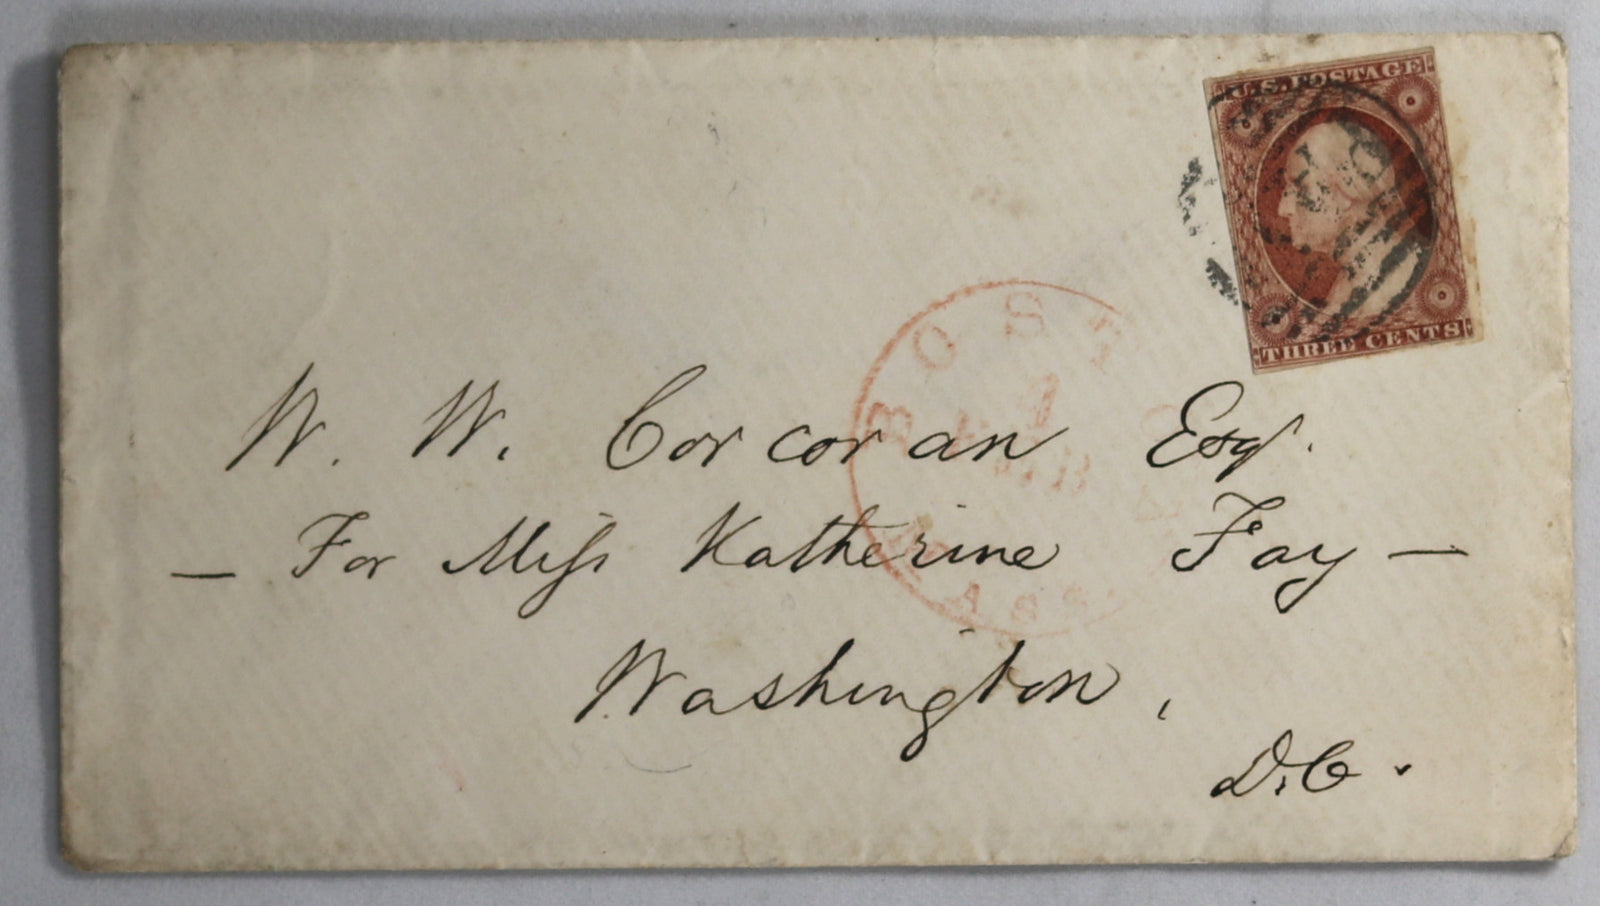 U.S. POSTAGE
THREE CENTS
BOST
1
FEB
MASS
W. W. Corcoran Esqr.
— For Miſs Katherine Fay —
Washington,
D.C.